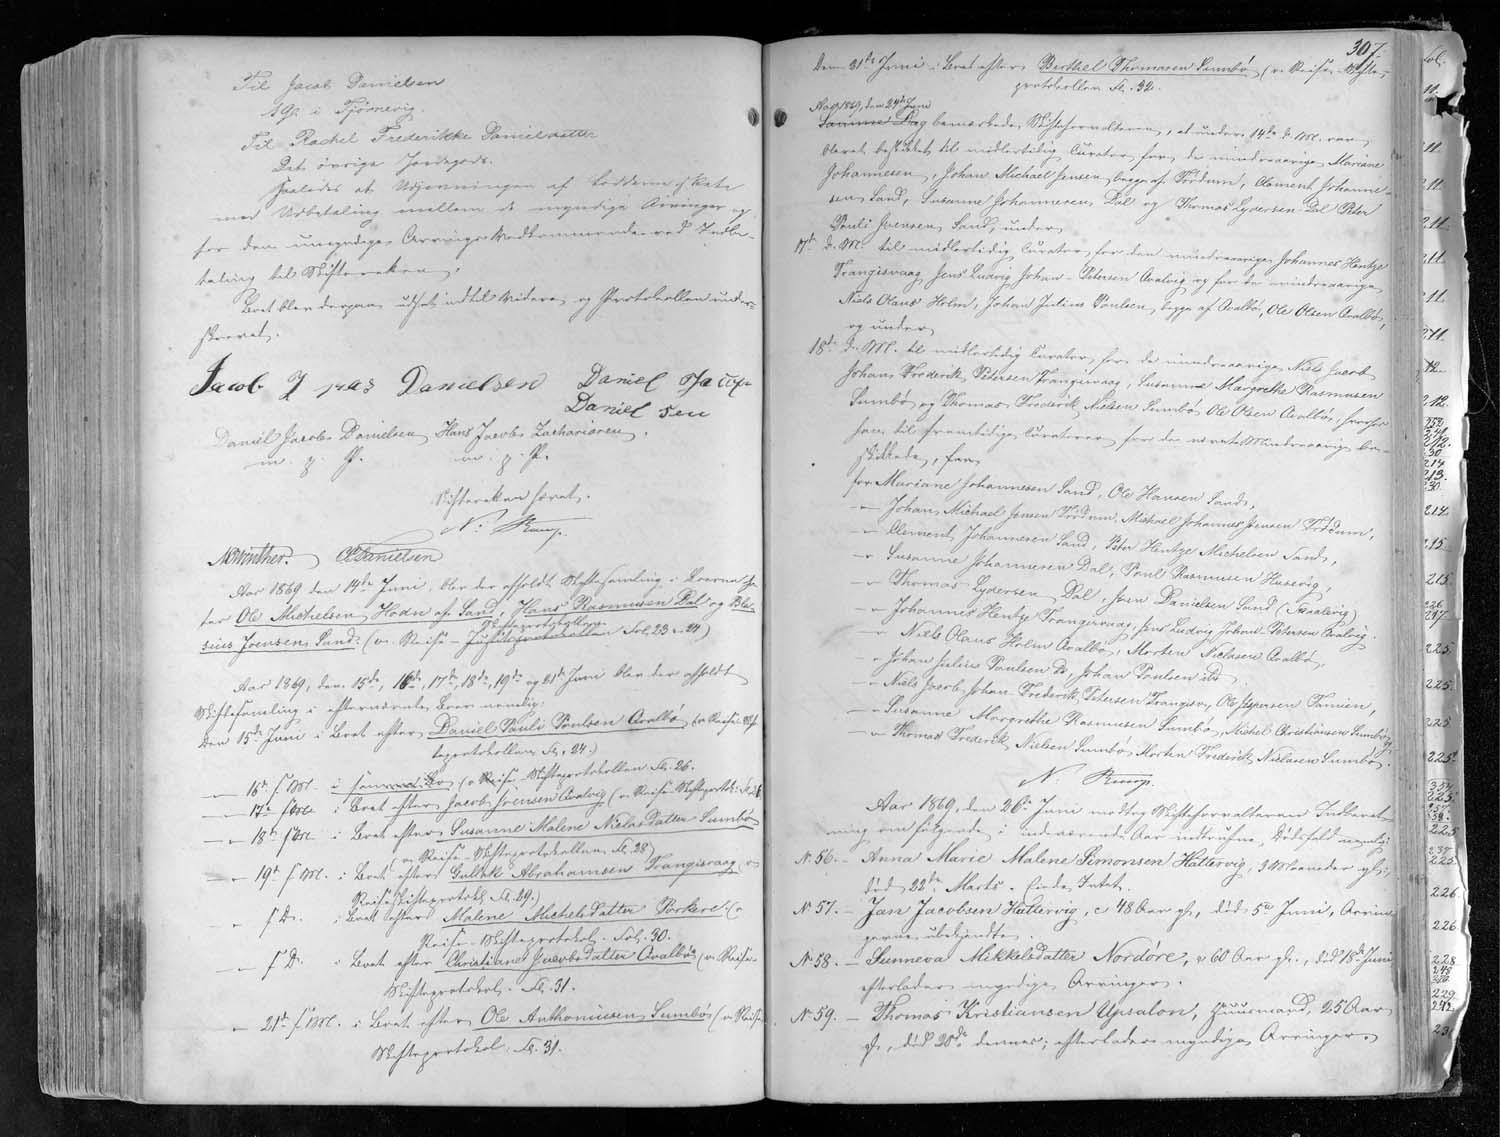 Til Jacob Danielsen
19 g. i Fjørnevig.
Til Rachel Frederikke Danielsdatter
Det øvrige Jordegods.
saaledes at Udjevningen af Lodderne skete
med Udbetaling mellem de myndige Arvinger og
for den umyndige Arvings Vedkommende ved Indbe-
taling til Skifteretten.
Boet blev derpaa udsat indtil Videre og Protokollen under-
skrevet.
Jacob J Danielsen Daniel Jacup
Daniel sen
Daniel Jacob Danielsen Hans Jacob Zachariasen.
m. p. P. m. p. P.
Skifteretten hævet.
N: Rump.
Winther. Danielsen
Aar 1869 den 14de Juni blev der afholdt Skiftesamling i Boerne ef-
ter Ole Michelsen af Sand, Hans Rasmussen Dal og Bla-
sius Joensen, Sand: (v. Reise- Skifteprotokollen Fol. 23 - 24)
Aar 1869, den 15de, 16de, 17de, 18de, 19de og 21de Juni blev der afholdt
Skiftesamling i efternævnte Boer nemlig:
Den 15de Juni i Boet efter Daniel Pauli Poulsen Qvalbø (v. Reise-Skif-
teprotokollen Fol. 24.)
— 16de s. M. i samme Bo (v. Reise-Skifteprotokollen Fol. 26.
— 17de s. M. i Boet efter Jacob Joensen Qvalvig (v. Reise-Skifteprotok: Fol. 26
— 18de s. M. i Boet efter Susanne Malene Niclasdatter Sumbø
(v. Reise-Skifteprotokollen Fol. 28)
— 19de s. M. i Boet efter Gullak Abrahamsen Trangisvaag (v.
Reise-Skifteprotok. Fol. 29.)
— s. D. i Boet efter Malene Michelsdatter Porkere (v.
Reise-Skifteprotokol. Fol. 30.
— s. D. i Boet efter Christiane Jacobsdatter Qvalbø (v. Reise-
Skifteprotokol. Fol. 31.
— 21de s. M. i Boet efter Ole Anthoniusen Sumbø (v. Reise-
Skifteprotokol. Fol. 31.
307.
Den 21de Juni i Boet efter Berthel Thomasen Sumbø (v. Reise-Skifte-
protokollen Fol. 32.
Aar 1869, den 24de Juni
Samme Dag bemærkede Skifteforvalteren, at under 14de d. M. var
blevet beskikket til midlertidig Curator for de mindreaarige Mariane
Johannesen, Johan Michael Jensen, begge af Frødum, Clement Johanne-
sen Sand, Susanne Johannesen Dal og Thomas Lydersen Dal Peter
Pauli Joensen Sand, under
17de d. M. til midlertidig Curator for den mindreaarige Johannes Hentze
Trangisvaag Jens Ludvig Johan-Petersen Qvalvig og for de mindreaarige
Niels Olaus Holm, Johan Julius Poulsen begge af Qvalbø, Ole Olsen Qvalbø,
og under
18de d. M. til midlertidig Curator for de mindreaarige Niels Jacob
Johan Frederik Petersen Trangisvaag, Susanne Margrethe Rasmussen
Sumbø og Thomas Frederik Nielsen Sumbø Ole Olsen Qvalbø, hvorfor
han til fremtidige Curatorer for de nævnte Mindreaarige be-
skikkede,
for Mariane Johannesen Sand, Ole Hansen Sand,
— Johan Michael Jensen Frødum, Michael Johannes Jensen Frødum,
— Clement Johannesen Sand, Peter Hentze Michelsen Sand,
— Susanne Johannesen Dal, Poul Rasmussen Husevig,
— Thomas Lydersen Dal, Sven Danielsen Sand (Skaalevig)
— Johannes Hentze Trangisvaag, Jens Ludvig Johan-Petersen Qvalvig.
— Niels Olaus Holm Qvalbø, Morten Niclasen Qvalbø,
— Johan Julius Poulsen Do, Johan Poulsen ibd.
— Niels Jacob Johan Frederik Petersen Trangisv., Ole Jespersen Famien,
— Susanne Margrethe Rasmussen Sumbø, Michel Christiansen Sumbø, og
— Thomas Frederik Nielsen Sumbø, Morten Frederik Niclasen Sumbø.
N: Rump.
Aar 1869, den 26de Juni modtog Skifteforvalteren Indberet-
ning om følgende i indeværende Aar indtrufne Dødsfald nemlig:
No 56. — Anna Marie Malene Simonsen Hattervig, 3 Maaneder gl.,
død 22de Marts. Eiede Intet.
No 57. — Jan Jacobsen Hattervig, c 48 Aar gl., død 5te Juni, Arvin-
gerne ubekjendte.
No 58. — Sunneva Mikkelsdatter Nordøre, c 60 Aar gl., død 18de Juni
efterlader myndige Arvinger.
No 59. — Thomas Kristiansen Upsalon, Huusmand, 25 Aar
gl., død 20de dennes; efterlader myndige Arvinger.